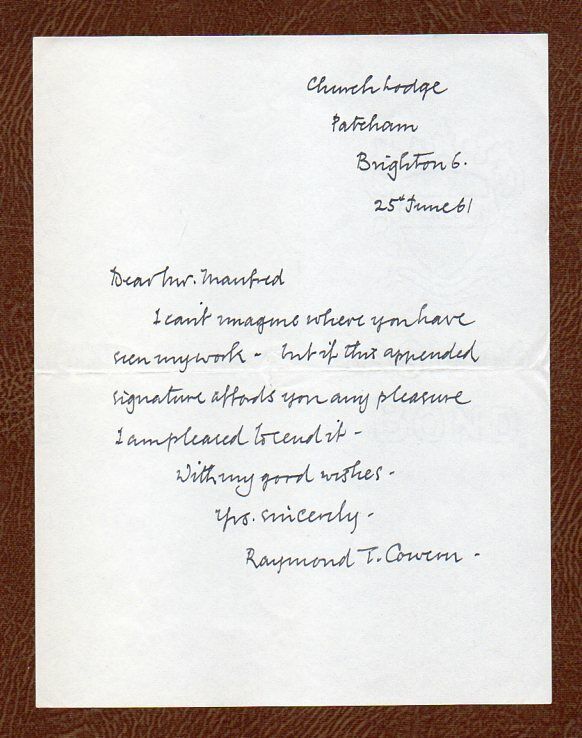 Church Lodge
Patcham
Brighton 6.
25th June 61
Dear Mr. Manfred
I can't imagine where you have
seen my work - but if this appended
signature affords you any pleasure
I am pleased to send it -
With my good wishes -
Yrs. sincerely -
Raymond T. Cowern -